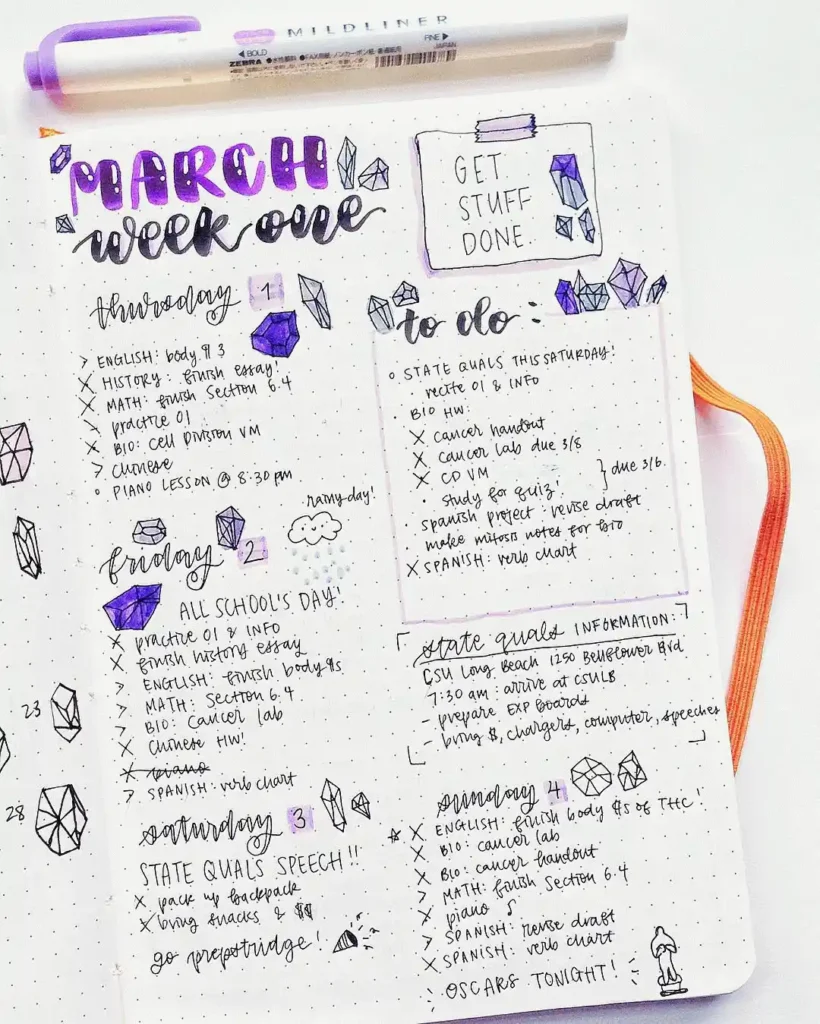 MILDLINER
◀BOLD
FINE▶
ZEBRA
JAPAN
MARCH
week one
GET
STUFF
DONE.
thursday 1
> ENGLISH: body ¶ 3
X HISTORY: finish essay!
X MATH: finish Section 6.4
practice OI
X BIO: Cell Division VM
> Chinese
o PIANO LESSON @ 8:30 pm
rainy day!
friday 2
ALL SCHOOL'S DAY!
X practice OI & INFO
X finish history essay
> ENGLISH: finish body ¶s
> MATH: Section 6.4
> BIO: Cancer lab
X Chinese HW!
X piano
> SPANISH: verb chart
saturday 3
STATE QUALS SPEECH!!
X pack up backpack
X bring snacks & $$
go prepstridge!
to do:
o STATE QUALS THIS SATURDAY!
• recite OI & INFO
• BIO HW:
X cancer handout
X cancer lab due 3/8
X CD VM
• study for quiz!
} due 3/6.
• spanish project: revise draft
make mitosis notes for bio
X SPANISH: verb chart
state quals INFORMATION:
CSU Long Beach 1250 Bellflower Blvd
7:30 am: arrive at CSULB
- prepare EXP boards
- bring $, chargers, computer, speeches
sunday 4
X ENGLISH: finish body ¶s of THC!
X BIO: cancer lab
X BIO: cancer handout
> MATH: finish Section 6.4
X piano
> SPANISH: revise draft
X SPANISH: verb chart
OSCARS TONIGHT!
23
28